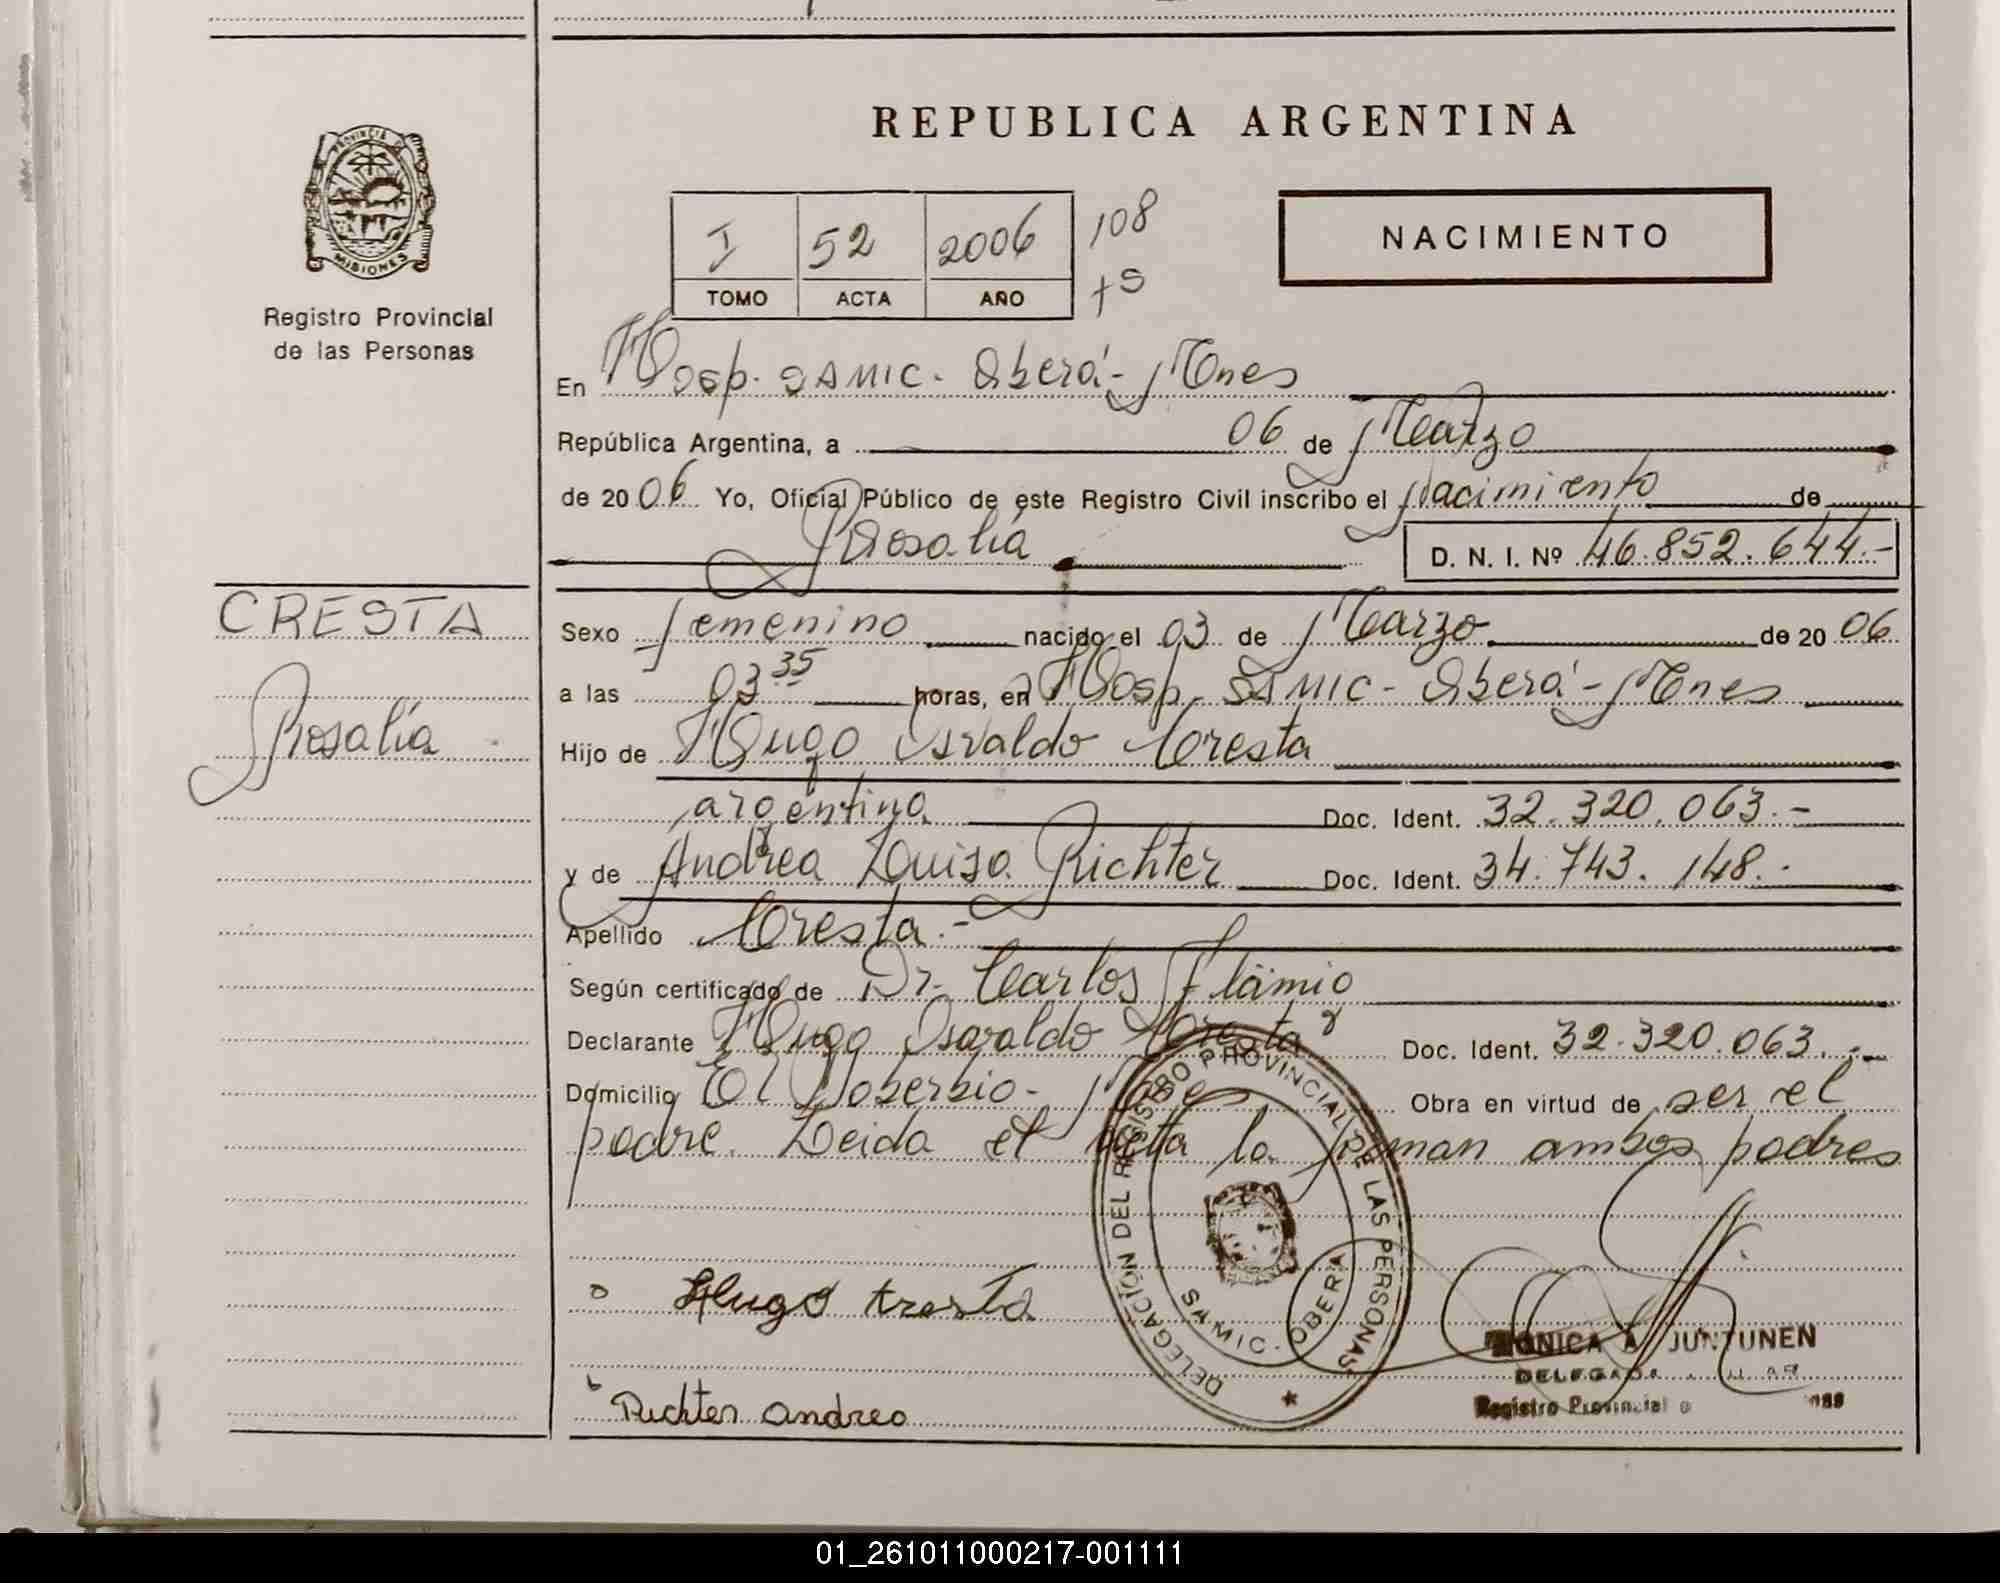 REPUBLICA ARGENTINA
PROVINCIA DE
MISIONES
Registro Provincial
de las Personas
I 52 2006 108
TOMO ACTA AÑO
NACIMIENTO
En Hosp. SAMIC. Oberá - Mnes
República Argentina, a 06 de Marzo
de 2006 Yo, Oficial Público de este Registro Civil inscribo el nacimiento de
Rosalía D. N. I. Nº 46.852.644.-
CRESTA
Rosalía
Sexo femenino nacido el 03 de Marzo de 2006
a las 03 35 horas, en Hosp. SAMIC - Oberá - Mnes
Hijo de Hugo Osvaldo Cresta
argentino Doc. Ident. 32.320.063.-
y de Andrea Luisa Richter Doc. Ident. 34.743.148.-
Apellido Cresta.-
Según certificado de Dr. Carlos Flamio
Declarante Hugo Osvaldo Cresta Doc. Ident. 32.320.063.-
Domicilio El Soberbio - Mnes Obra en virtud de ser el
padre. Leida el acta la firman ambos padres
Hugo Cresta
Richter Andrea
DELEGACIÓN DEL REGISTRO PROVINCIAL DE LAS PERSONAS
SAMIC - OBERA
MONICA A JUNTUNEN
DELEGADA
Registro Provincial
01_261011000217-001111